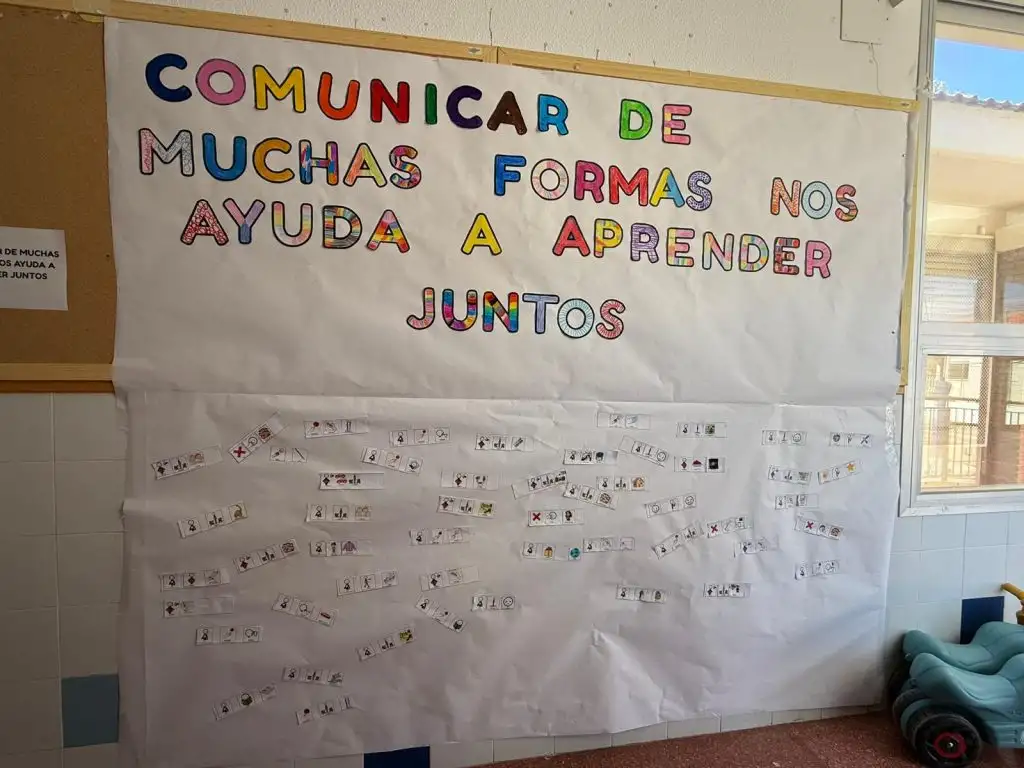 COMUNICAR DE
MUCHAS FORMAS NOS
AYUDA A APRENDER
JUNTOS
DE MUCHAS
OS AYUDA A
ER JUNTOS